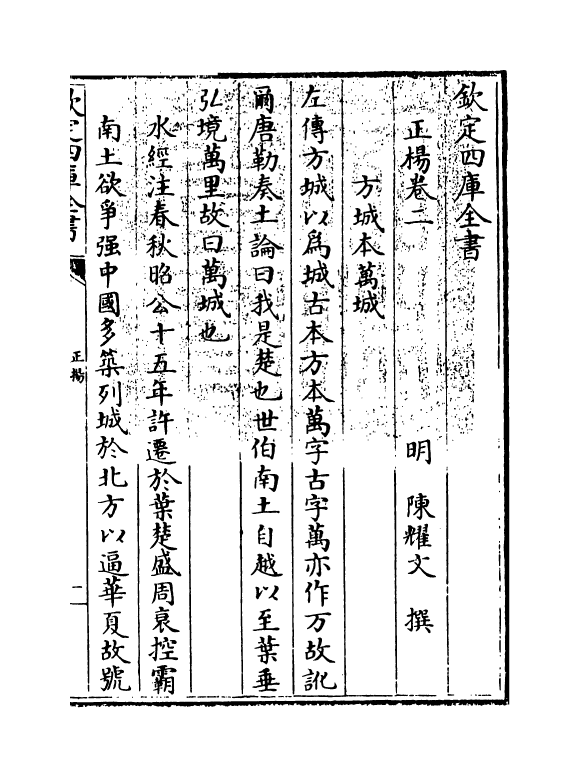 欽定四庫全書
正楊卷二
明 陳耀文 撰
方城本萬城
左傳方城以為城古本方本萬字古字萬亦作万故訛
爾唐勒奏土論曰我是楚也世伯南土自越以至葉垂
弘境萬里故曰萬城也
水經注春秋昭公十五年許遷於葉楚盛周衰控霸
南土欲爭强中國多築列城於北方以逼華夏故號
欽定四庫全書
正楊
二